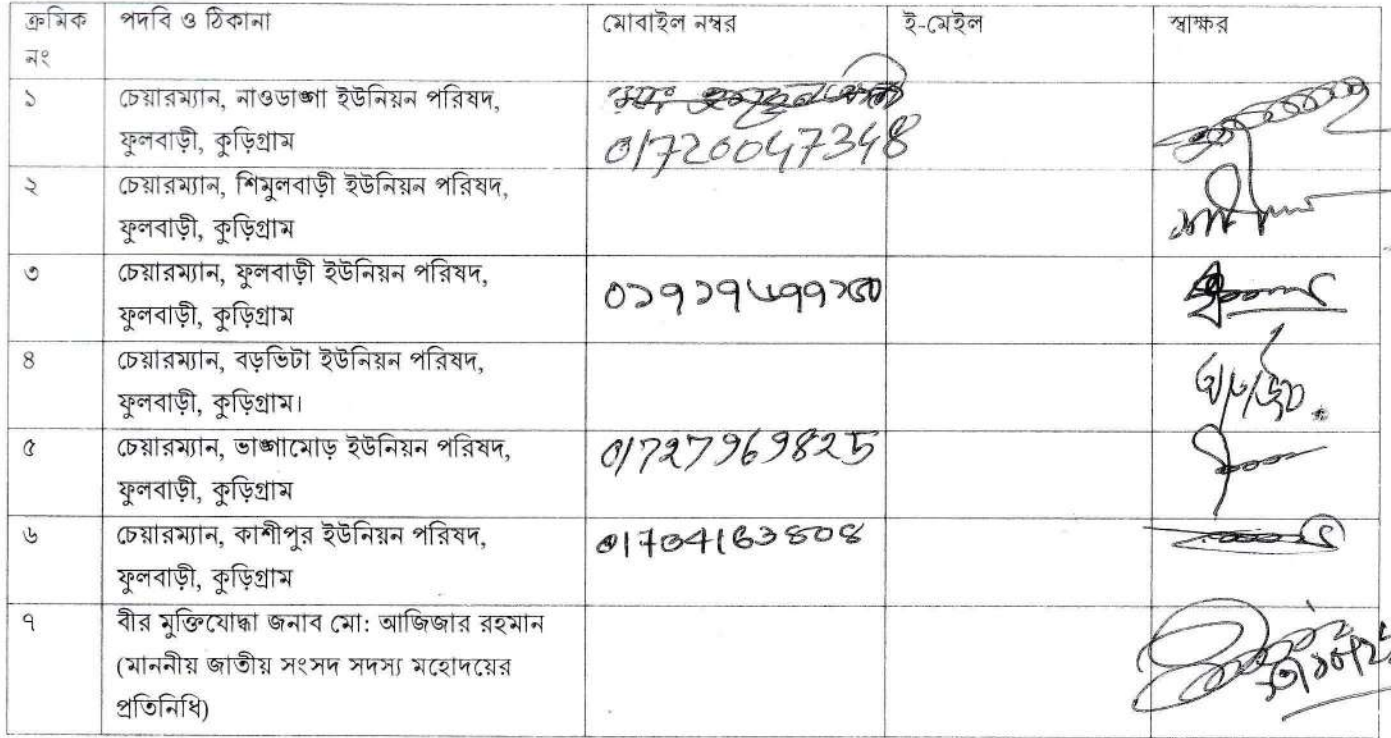 ক্রমিক নং
পদবি ও ঠিকানা
মোবাইল নম্বর
ই-মেইল
স্বাক্ষর
১
চেয়ারম্যান, নাওডাঙ্গা ইউনিয়ন পরিষদ,
ফুলবাড়ী, কুড়িগ্রাম
01720047348
২
চেয়ারম্যান, শিমুলবাড়ী ইউনিয়ন পরিষদ,
ফুলবাড়ী, কুড়িগ্রাম
৩
চেয়ারম্যান, ফুলবাড়ী ইউনিয়ন পরিষদ,
ফুলবাড়ী, কুড়িগ্রাম
৪
চেয়ারম্যান, বড়ভিটা ইউনিয়ন পরিষদ,
ফুলবাড়ী, কুড়িগ্রাম।
৫
চেয়ারম্যান, ভাঙ্গামোড় ইউনিয়ন পরিষদ,
ফুলবাড়ী, কুড়িগ্রাম
01727969825
৬
চেয়ারম্যান, কাশীপুর ইউনিয়ন পরিষদ,
ফুলবাড়ী, কুড়িগ্রাম
01704163808
৭
বীর মুক্তিযোদ্ধা জনাব মো: আজিজার রহমান
(মাননীয় জাতীয় সংসদ সদস্য মহোদয়ের
প্রতিনিধি)